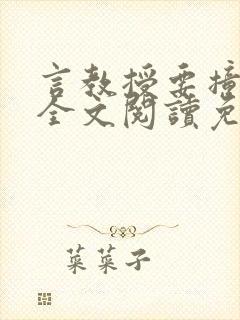 言教授要撞
全文閱讀免
菜菜子